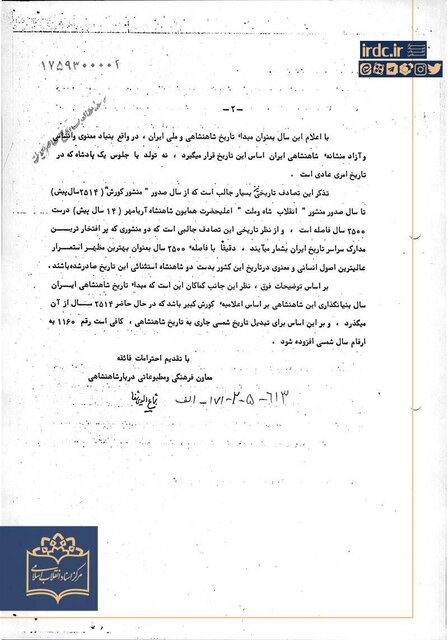 irdc.ir
۱۷۵۹۳۰۰۰۰۲
-۲-
با اعلام این سال بعنوان مبداء تاریخ شاهنشاهی و ملی ایران ، در واقع بنیاد معنوی وانسانی
و آزاد منشانه شاهنشاهی ایران اساس این تاریخ قرار میگیرد ، نه تولد یا جلوس یک پادشاه که در
تاریخ امری عادی است .
تذکر این تصادف تاریخی بسیار جالب است که از سال صدور " منشور کورش" (۲۵۱۴سال پیش)
تا سال صدور منشور " انقلاب شاه وملت " اعلیحضرت همایون شاهنشاه آریامهر (۱۴ سال پیش) درست
۲۵۰۰ سال فاصله است ، و از نظر تاریخی این تصادف جالبی است که دو منشوری که پر افتخار ترین
مدارک سراسر تاریخ ایران بشمار میآیند ، دقیقاً با فاصله ۲۵۰۰ سال بعنوان بهترین مظهر استمرار
عالیترین اصول انسانی و معنوی درتاریخ این کشور بدست دو شاهنشاه استثنائی این تاریخ صادرشده باشند.
بر اساس توضیحات فوق ، نظر این جانب کماکان این است که مبداء تاریخ شاهنشاهی ایران
سال بنیانگذاری این شاهنشاهی بر اساس اعلامیه کورش کبیر باشد که در حال حاضر ۲۵۱۴ سال از آن
میگذرد ، و بر این اساس برای تبدیل تاریخ شمسی جاری به تاریخ شاهنشاهی ، کافی است رقم ۱۱۶۰ به
ارقام سال شمسی افزوده شود .
با تقدیم احترامات فائقه
معاون فرهنگی ومطبوعاتی دربارشاهنشاهی
شجاع الدین شفا
۶۱۳-۵-۲-۱۷۱-الف
مرکز اسناد انقلاب اسلامی